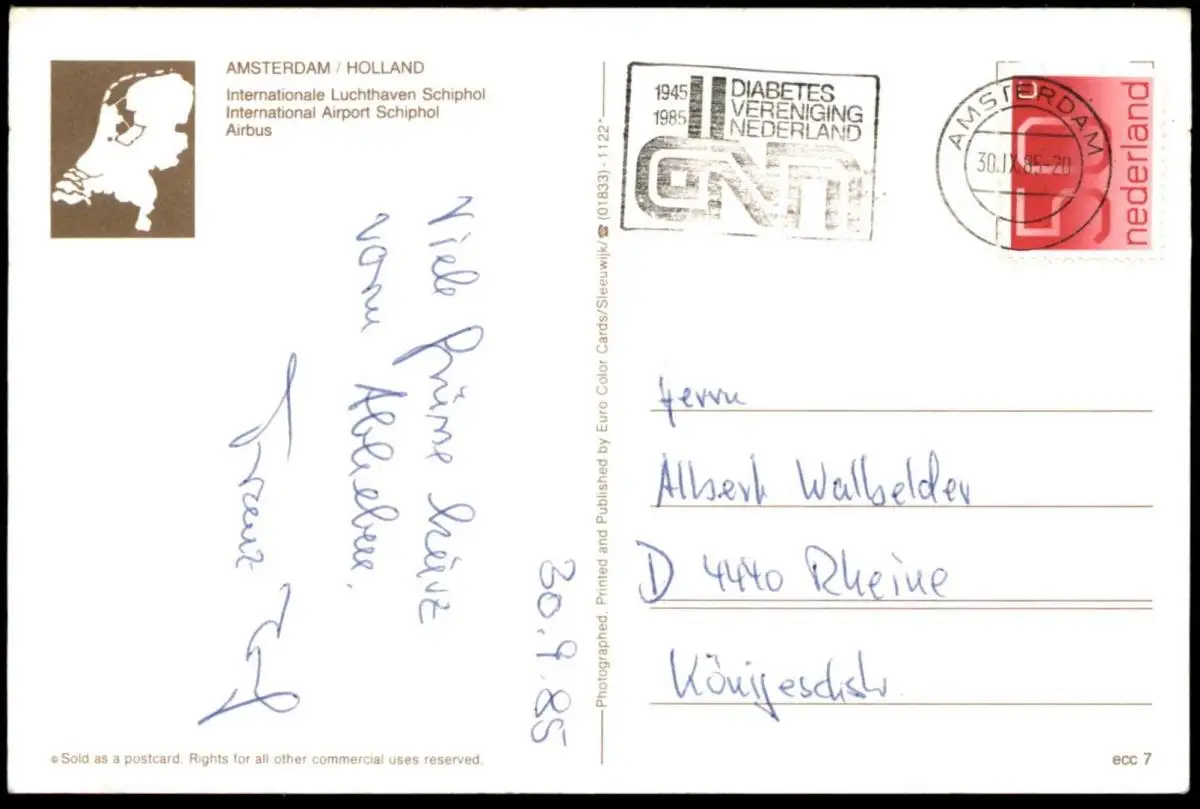 AMSTERDAM / HOLLAND
Internationale Luchthaven Schiphol
International Airport Schiphol
Airbus
30.9.85
Viele Grüsse kurz
vorm Abheben.
Franz
© Sold as a postcard. Rights for all other commercial uses reserved.
Photographed, Printed and Published by Euro Color Cards/Sleeuwijk/☎ (01833) - 1122*
1945
1985
DIABETES
VERENIGING
NEDERLAND
AMSTERDAM
30.IX.85-20
50
nederland
Herrn
Albert Walbelder
D 4440 Rheine
Königseschstr.
ecc 7